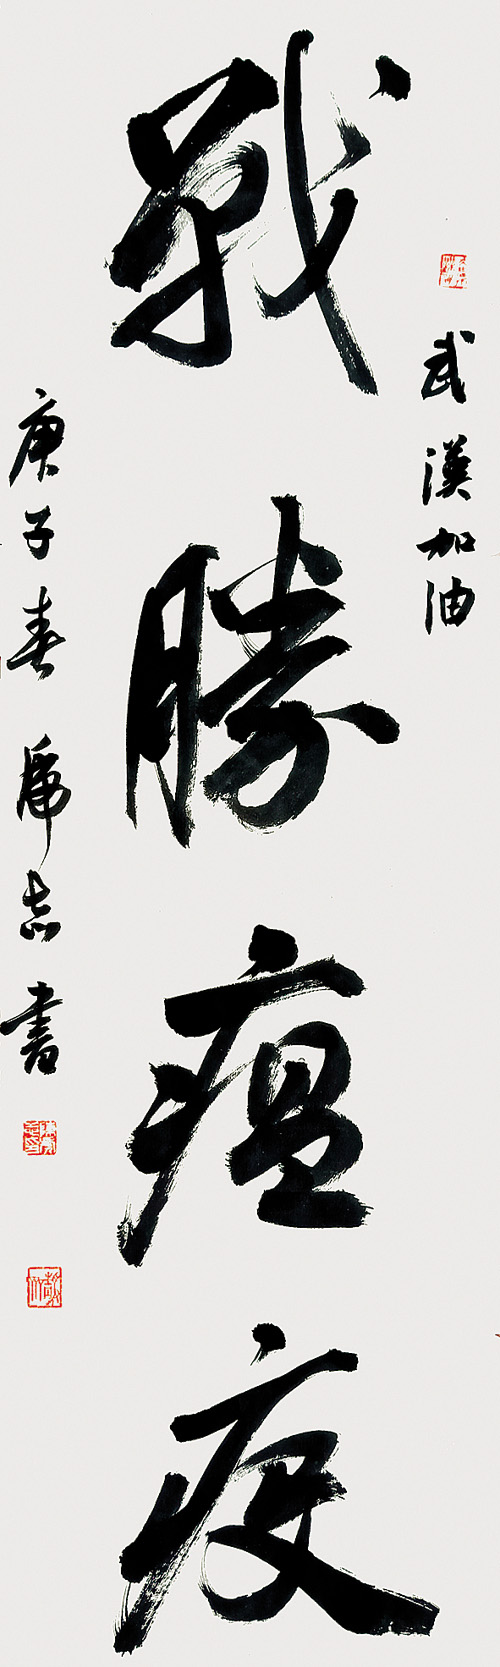 武漢加油
戰勝瘟疫
庚子春 虎志書